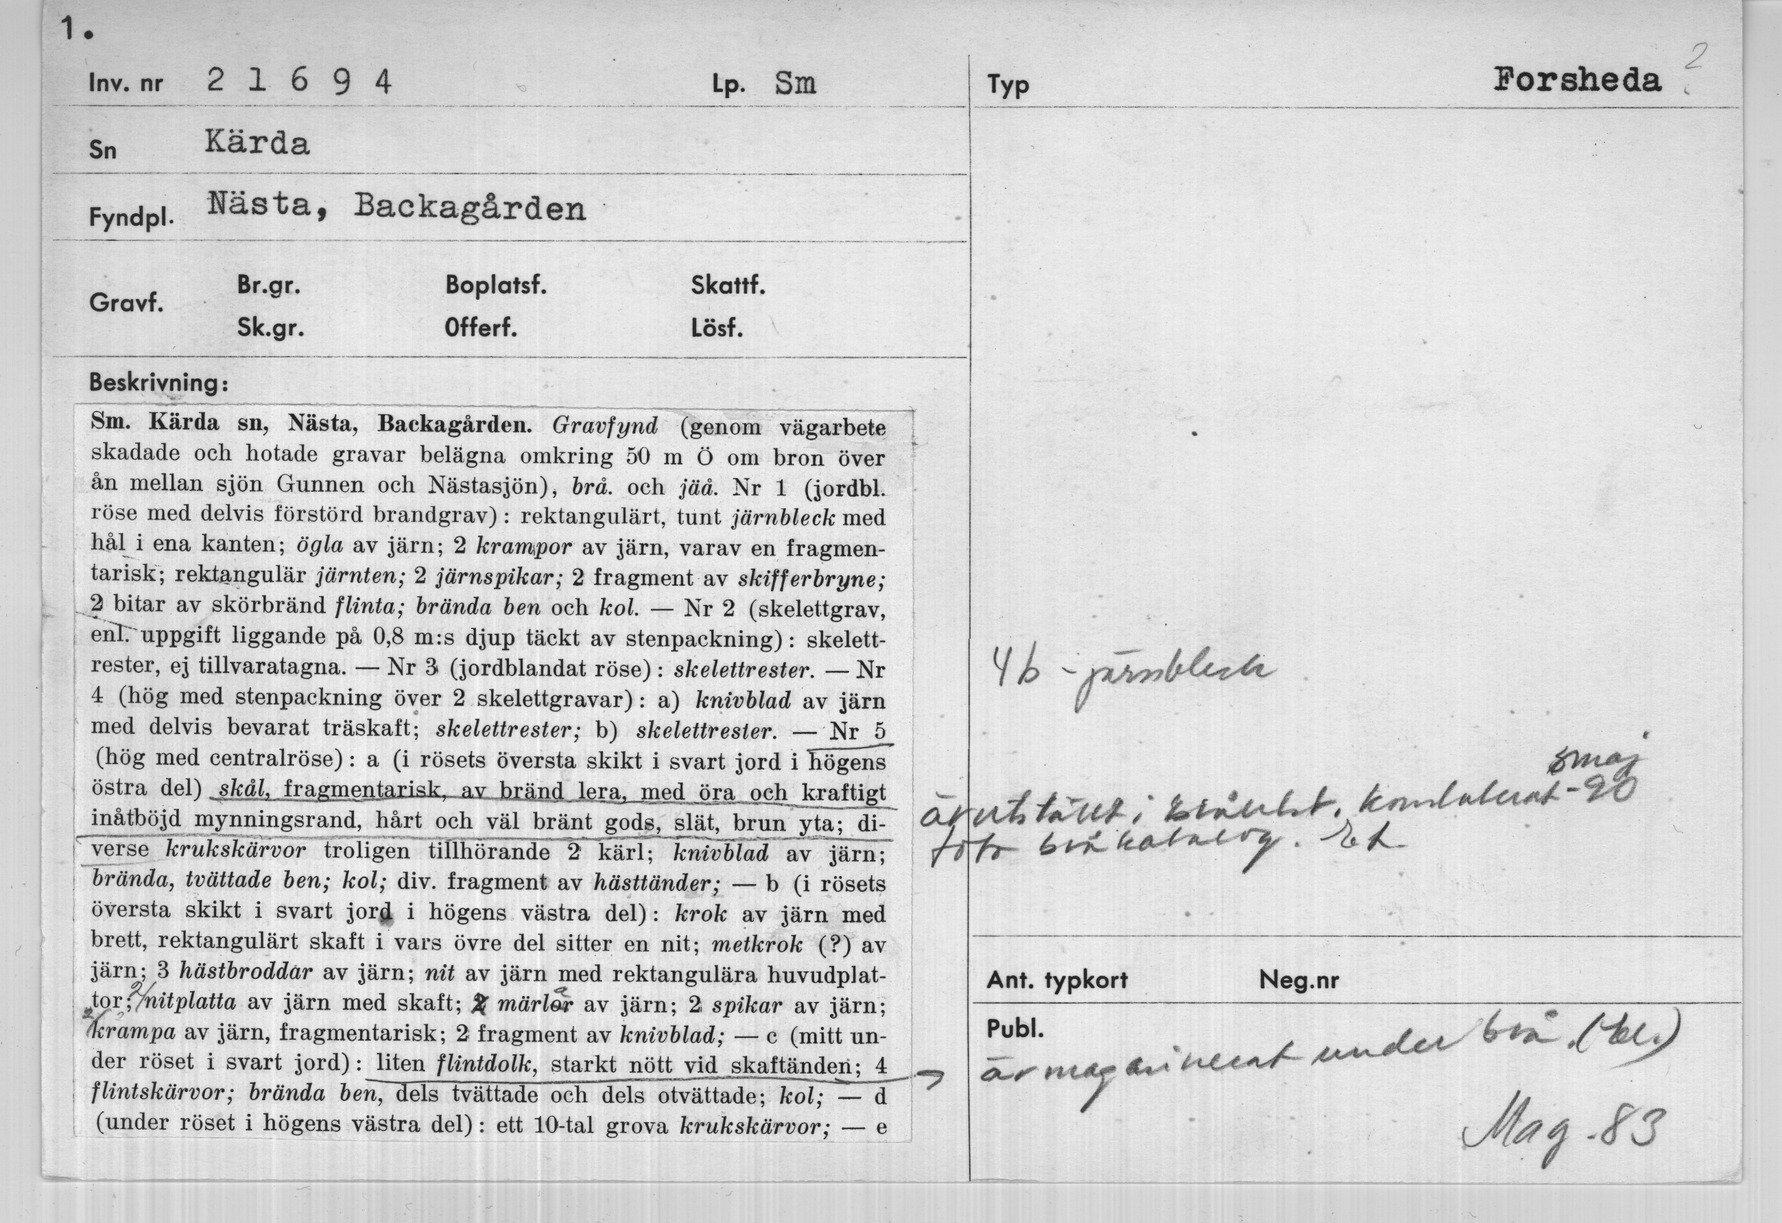 1.
Inv. nr 2 1 6 9 4 Lp. Sm
Sn Kärda
Fyndpl. Nästa, Backagården
Gravf. Br.gr. Boplatsf. Skattf.
Sk.gr. Offerf. Lösf.
Beskrivning:
Sm. Kärda sn, Nästa, Backagården. Gravfynd (genom vägarbete
skadade och hotade gravar belägna omkring 50 m Ö om bron över
ån mellan sjön Gunnen och Nästasjön), brå. och jäå. Nr 1 (jordbl.
röse med delvis förstörd brandgrav): rektangulärt, tunt järnbleck med
hål i ena kanten; ögla av järn; 2 krampor av järn, varav en fragmen-
tarisk; rektangulär järnten; 2 järnspikar; 2 fragment av skifferbryne;
2 bitar av skörbränd flinta; brända ben och kol. — Nr 2 (skelettgrav,
enl. uppgift liggande på 0,8 m:s djup täckt av stenpackning): skelett-
rester, ej tillvaratagna. — Nr 3 (jordblandat röse): skelettrester. — Nr
4 (hög med stenpackning över 2 skelettgravar): a) knivblad av järn
med delvis bevarat träskaft; skelettrester; b) skelettrester. — Nr 5
(hög med centralröse): a (i rösets översta skikt i svart jord i högens
östra del) skål, fragmentarisk, av bränd lera, med öra och kraftigt
inåtböjd mynningsrand, hårt och väl bränt gods, slät, brun yta; di-
verse krukskärvor troligen tillhörande 2 kärl; knivblad av järn;
brända, tvättade ben; kol; div. fragment av hästtänder; — b (i rösets
översta skikt i svart jord i högens västra del): krok av järn med
brett, rektangulärt skaft i vars övre del sitter en nit; metkrok (?) av
järn; 3 hästbroddar av järn; nit av järn med rektangulära huvudplat-
tor; nitplatta av järn med skaft; 2 märlor av järn; 2 spikar av järn;
krampa av järn, fragmentarisk; 2 fragment av knivblad; — c (mitt un-
der röset i svart jord): liten flintdolk, starkt nött vid skaftänden; 4
flintskärvor; brända ben, dels tvättade och dels otvättade; kol; — d
(under röset i högens västra del): ett 10-tal grova krukskärvor; — e
Typ Forsheda 2
4b - järnbleck
maj
är utställt i konstaterat -90
foto bråkatalog.
Ant. typkort Neg.nr
Publ.
är magasinerat under brå.
Mag -83